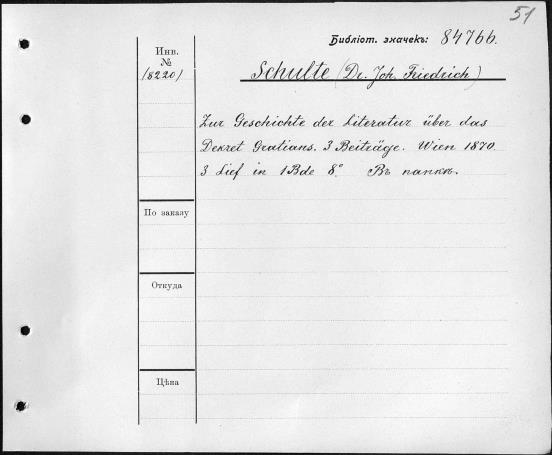 51
Библіот. значекъ: 84766.
Инв.
№
(8220)
Schulte (Dr. Joh. Friedrich)
Zur Geschichte der Literatur über das
Dekret Gratians. 3 Beiträge. Wien 1870.
3 Lief in 1 Bde 8° Въ папкѣ.
По заказу
Откуда
Цѣна